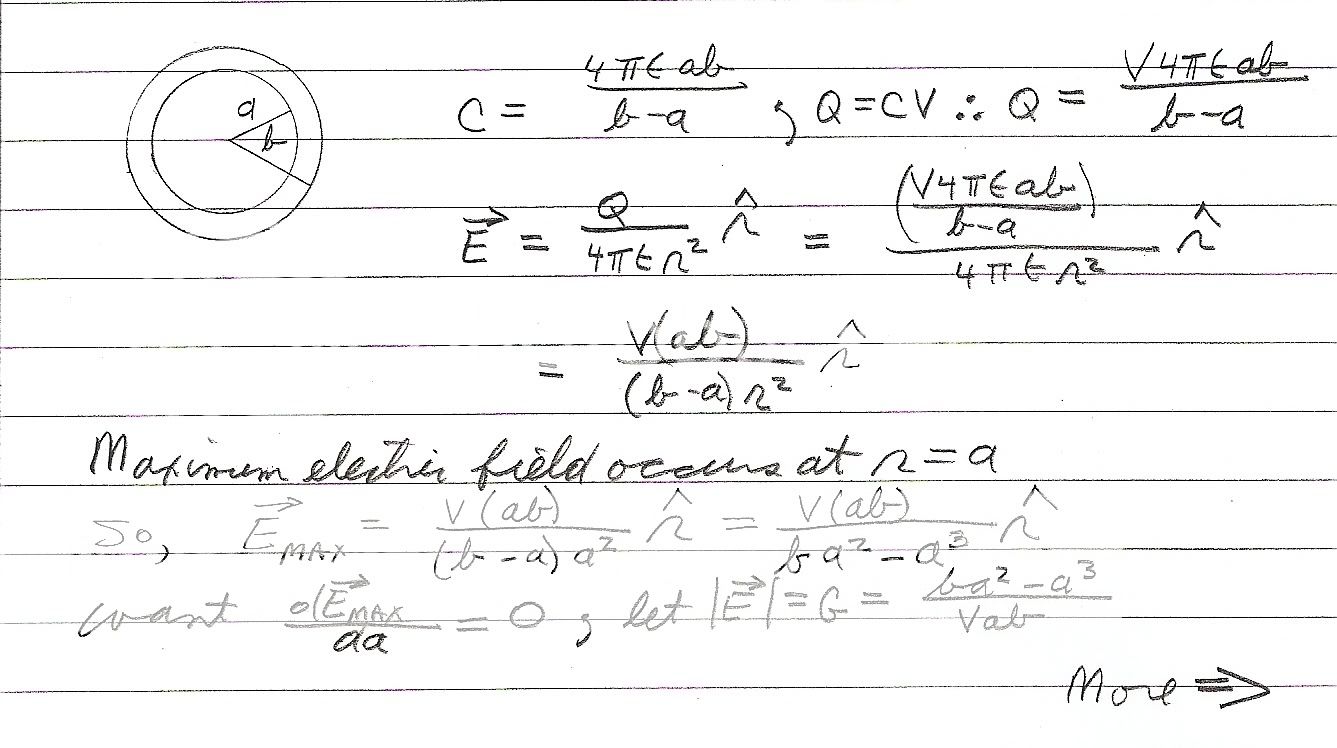 a
b
C = 4πϵab / b-a ; Q = CV ∴ Q = V4πϵab / b-a
E⃗ = Q / 4πϵr² r̂ = (V4πϵab / b-a) / 4πϵr² r̂
= V(ab) / (b-a)r² r̂
Maximum electric field occurs at r = a
So, E⃗MAX = V(ab) / (b-a)a² r̂ = V(ab) / ba²-a³ r̂
want d|E⃗MAX / da = 0 ; let |E⃗| = G = ba²-a³ / Vab
More ⇒